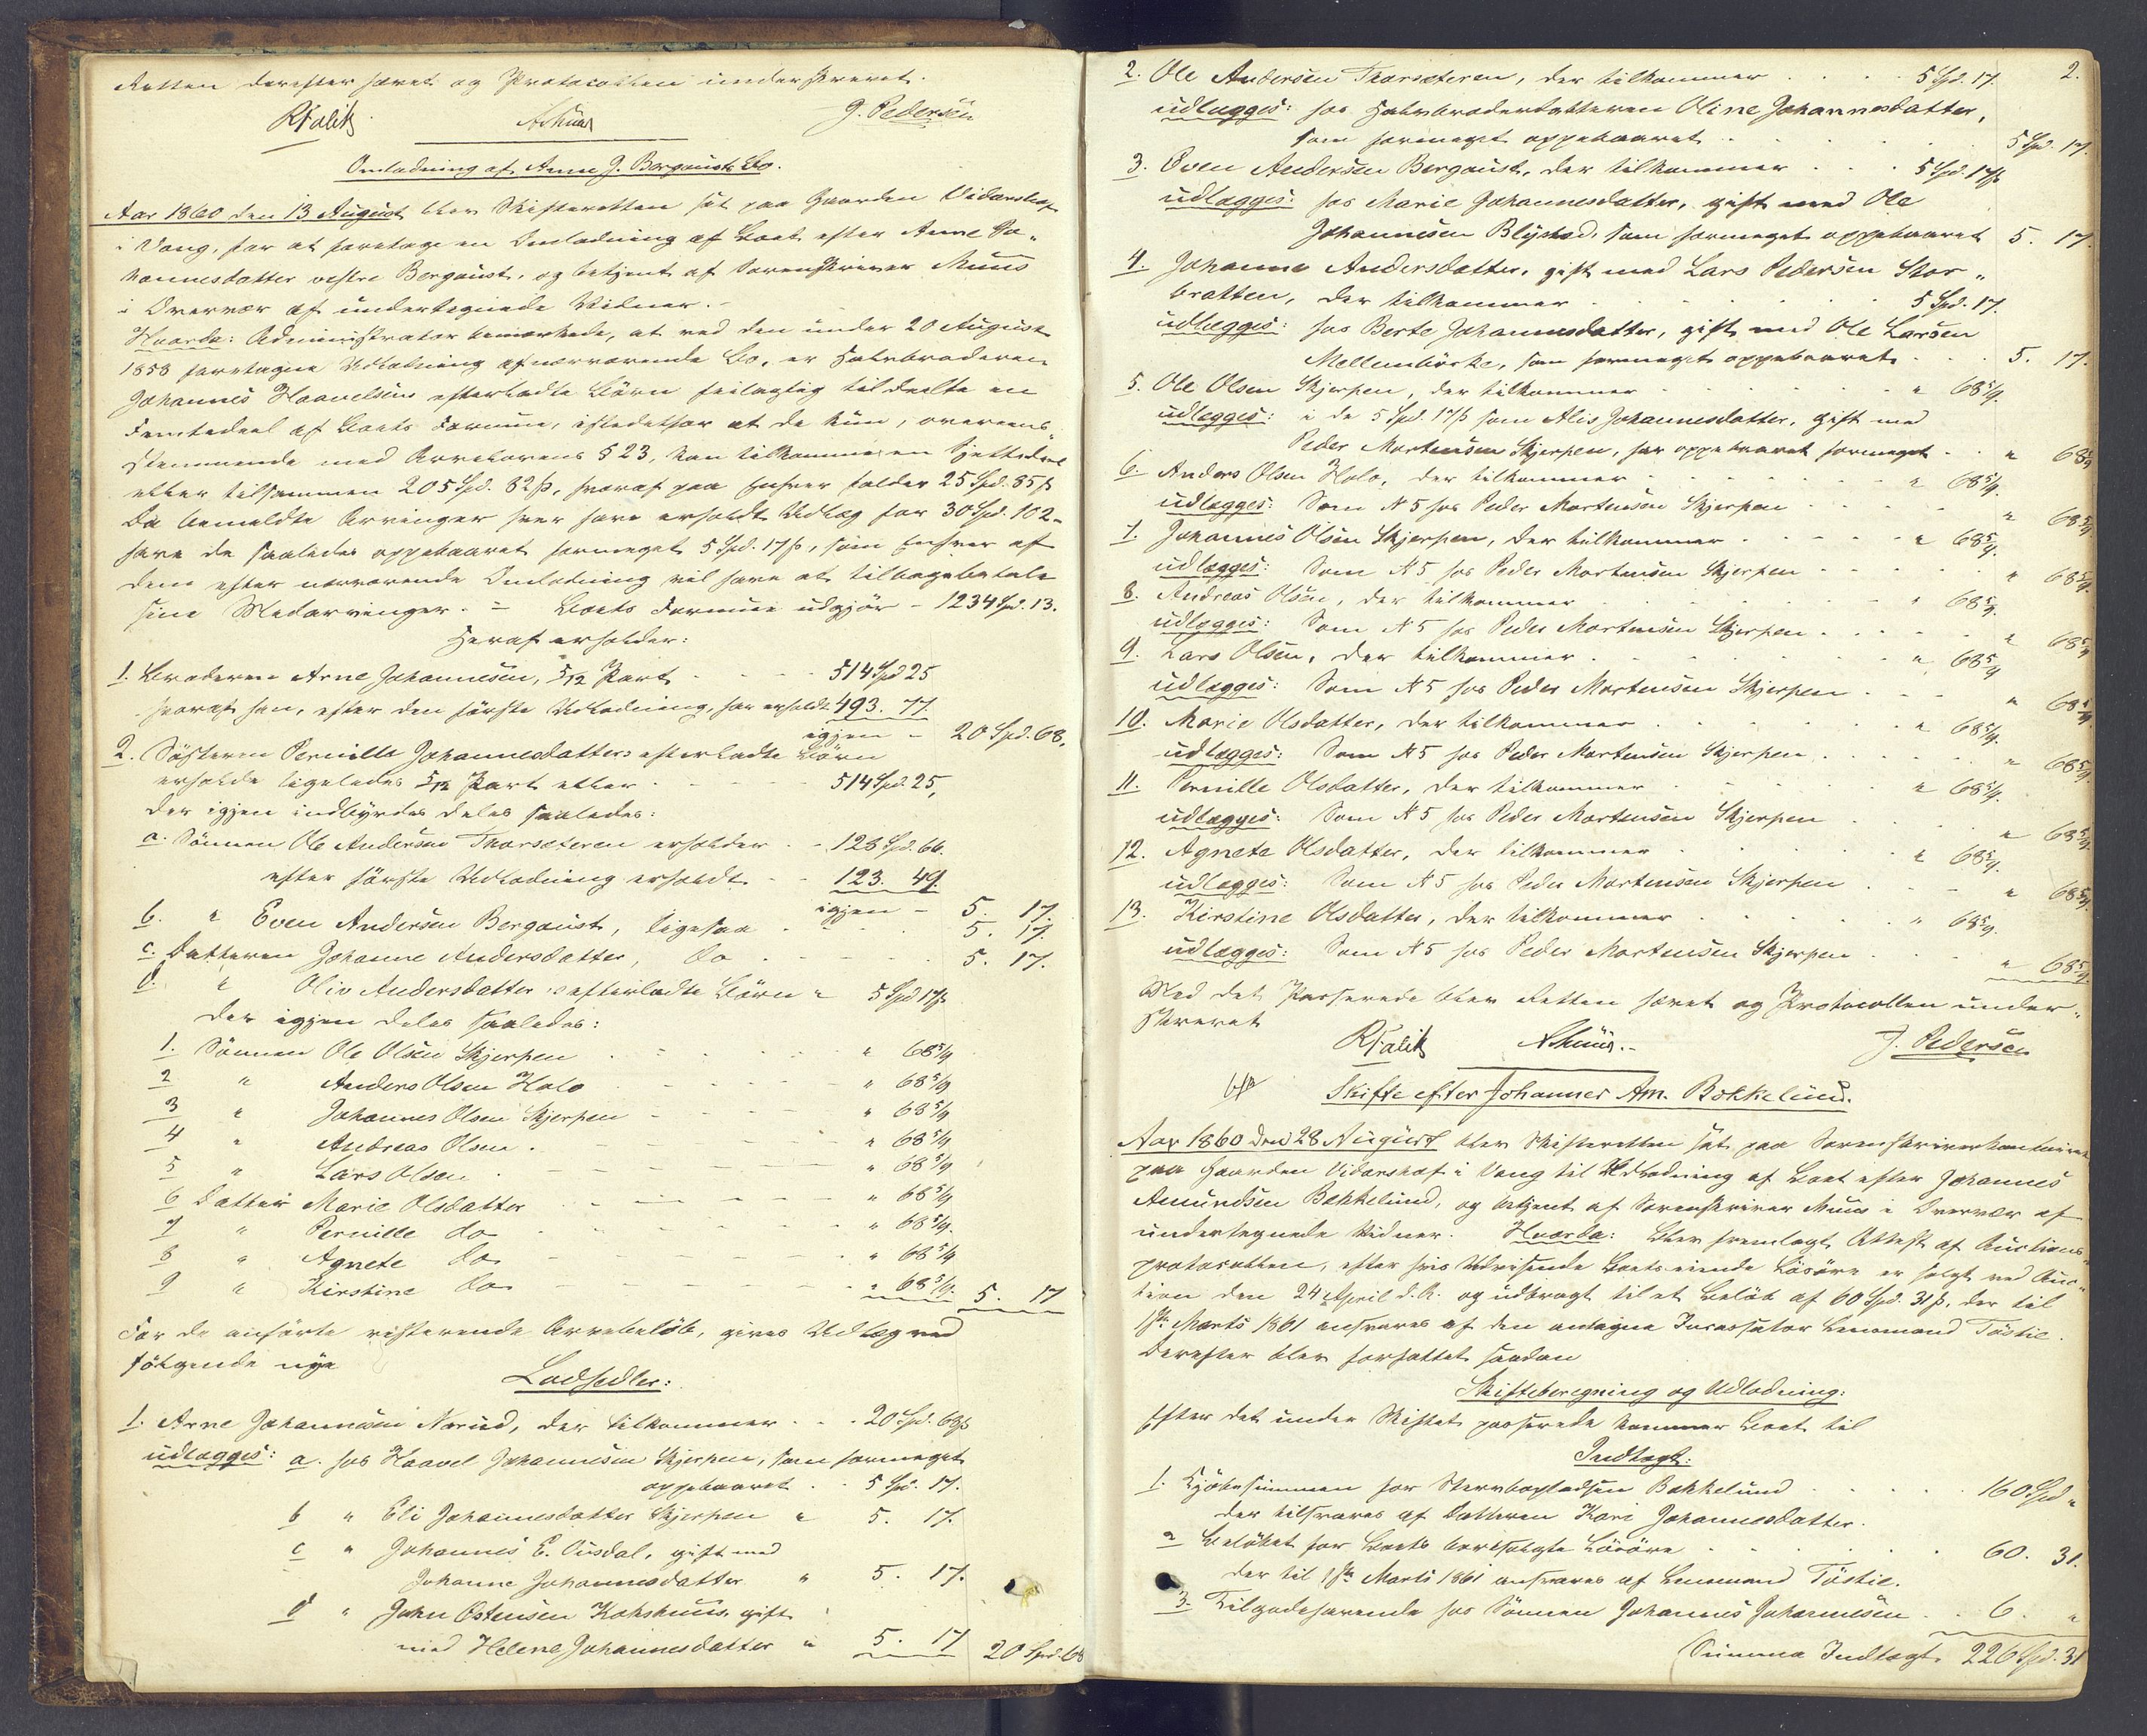 Retten derefter hævet og Protocollen underskrevet.
RFalck AMuus J. Pedersen
Omlodning af Anne J. Bergausts Bo.
Aar 1860 den 13 August blev Skifteretten sat paa Gaarden Vidarshof
i Vang, for at foretage en Omlodning af Boet efter Anne Jo„
hannesdatter vestre Bergaust, og betjent af Sorenskriver Muus
i Overvær af undertegnede Vidner.-
Hvorda: Administrator bemærkede, at ved den under 20 August
1858 foretagne Udlodning af nærværende Bo, er Halvbroderen
Johannes Haavelsens efterladte Børn feilagtig tildeelte en
Femtedeel af Boets Formue, istedetfor at de kun, overeens„
stemmende med Arvelovens § 23, kan tilkomme en Sjettedeel
eller tilsammen 205 Spd. 82 ß, hvoraf paa Enhver falder 25 Spd. 85 ß
Da bemeldte Arvinger hver have erholdt Udlæg for 30 Spd. 102 -
have de saaledes oppebaaret formeget 5 Spd. 17 ß, som Enhver af
dem efter nærværende Omlodning vil have at tilbagebetale
sine Medarvinger. - Boets Formue udgjør - 1234 Spd. 13.
Heraf erholder:
1. Broderen Arne Johannesen, 5/12 Part - - - 514 Spd 25
hvoraf han, efter den første Udlodning, har erholdt 493. 77.
igjen - 20 Spd. 68.
2. Søsteren Pernille Johannesdatters efterladte Børn
erholde ligeledes 5/12 Part eller - - - 514 Spd. 25,
der igjen indbyrdes deles saaledes:
a. Sønnen Ole Andersen Thorsæteren erholder - - 128 Spd. 66.
efter første Udlodning erholdt - - 123. 49.
igjen - 5. 17.
b. " Even Andersen Bergaust, ligesaa - - - 5. 17.
c. Datteren Johanne Andersdatter, do - - - 5. 17.
d. " Oliv Andersdatters efterladte Børn " 5 Spd 17 ß
der igjen deles saaledes:
1. Sønnen Ole Olsen Skjerpen - - - " 68 5/9
2 " Anders Olsen Holo - - - " 68 5/9
3 " Johannes Olsen Skjerpen - - - " 68 5/9
4 " Andreas Olsen - - - " 68 5/9
5 " Lars Olsen - - - " 68 5/9
6 Datter Marie Olsdatter - - - " 68 5/9
7 " Pernille do - - - " 68 5/9.
8 " Agnete do - - - " 68 5/9
9 " Kirstine do - - - " 68 5/9. 5. 17
For de anførte resterende Arvebeløb, gives Udlæg ved
følgende nye
Lodsedler:
1. Arne Johannesen Norud, der tilkommer - - - 20 Spd. 68 ß
udlægges: a. hos Haavel Johannesen Skjerpen, som formeget
oppebaaret - - 5 Spd. 17.
b " Eli Johannesdatter Skjerpen " 5. 17.
c " Johannes E. Ousdal, gift med
Johanne Johannesdatter " 5. 17.
d " John Østensen Kokshuus, gift
med Helene Johannesdatter " 5. 17 20 Spd. 68
2.
2. Ole Andersen Thorsæteren, der tilkommer - - - 5 Spd. 17.
udlægges: hos Halvbroderdatteren Oline Johannesdatter,
som formeget oppebaaret - - - 5 Spd. 17.
3. Even Andersen Bergaust, der tilkommer - - - 5 Spd. 17 ß
udlægges: hos Marie Johannesdatter, gift med Ole
Johannesen Blystad, som formeget oppebaaret 5. 17.
4. Johanne Andersdatter, gift med Lars Pedersen Stor„
bratten, der tilkommer - - - 5 Spd. 17.
udlægges: hos Berte Johannesdatter, gift med Ole Larsen
Mellembörke, som formeget oppebaaret - - - 5. 17.
5. Ole Olsen Skjerpen, der tilkommer - - - " 68 5/9.
udlægges: i de 5 Spd. 17 ß som Alis Johannesdatter, gift med
Peder Mortensen Skjerpen, har oppebaaret formeget - - " 68 5/9
6. Anders Olsen Holo, der tilkommer - - - " 68 5/9.
udlægges: Som N 5 hos Peder Mortensen Skjerpen - - - " 68 5/9.
7. Johannes Olsen Skjerpen, der tilkommer - - - " 68 5/9.
udlægges: Som N 5 hos Peder Mortensen Skjerpen - - - " 68 5/9.
8. Andreas Olsen, der tilkommer - - - " 68 5/9.
udlægges: Som N 5 hos Peder Mortensen Skjerpen - - - " 68 5/9
9. Lars Olsen, der tilkommer - - - " 68 5/9
udlægges: Som N 5 hos Peder Mortensen Skjerpen - - - " 68 5/9
10. Marie Olsdatter, der tilkommer - - - " 68 5/9.
udlægges: Som N 5 hos Peder Mortensen Skjerpen - - - " 68 5/9.
11. Pernille Olsdatter, der tilkommer - - - " 68 5/9.
udlægges: Som N 5 hos Peder Mortensen Skjerpen - - - " 68 5/9.
12. Agnete Olsdatter, der tilkommer - - - " 68 5/9.
udlægges: Som N 5 hos Peder Mortensen Skjerpen - - - " 68 5/9.
13. Kirstine Olsdatter, der tilkommer - - - " 68 5/9.
udlægges: Som N 5 hos Peder Mortensen Skjerpen - - - " 68 5/9.
Med det Passerede blev Retten hævet og Protocollen under„
skrevet
RFalck AMuus.- J. Pedersen
Skifte efter Johannes Am. Bekkelund.
Aar 1860 den 28 August blev Skifteretten sat paa Sorenskriverkontoiret
paa Gaarden Vidarshof i Vang til Udlodning af Boet efter Johannes
Amundsen Bekkelund, og betjent af Sorenskriver Muus i Overvær af
undertegnede Vidner. Hvorda: Blev fremlagt Attest af Auctions„
protocollen, efter hvis Udvisende Boets eiende Løsøre er solgt ved Auc„
tion den 24 April d. A. og udbragt til et Beløb af 60 Spd. 31 ß, der til
1ste Marts 1861 ansvares af den antagne Incassator Lensmand Tøstie.
Derefter blev forfattet saadan
Skifteberegning og Udlodning:
Efter det under Skiftet passerede kommer Boet til
Indtægt:
1. Kjøbesummen for Stervbopladsen Bekkelund - - - 160 Spd "
der tilsvares af Datteren Kari Johannesdatter.
2 Beløbet for Boets bortsolgte Løsøre - - - 60. 31.
der til 1ste Marts 1861 ansvares af Lensmand Tøstie.
3. Tilgodehavende hos Sønnen Johannes Johannesen - - 6. "
Summa Indtægt 226 Spd. 31